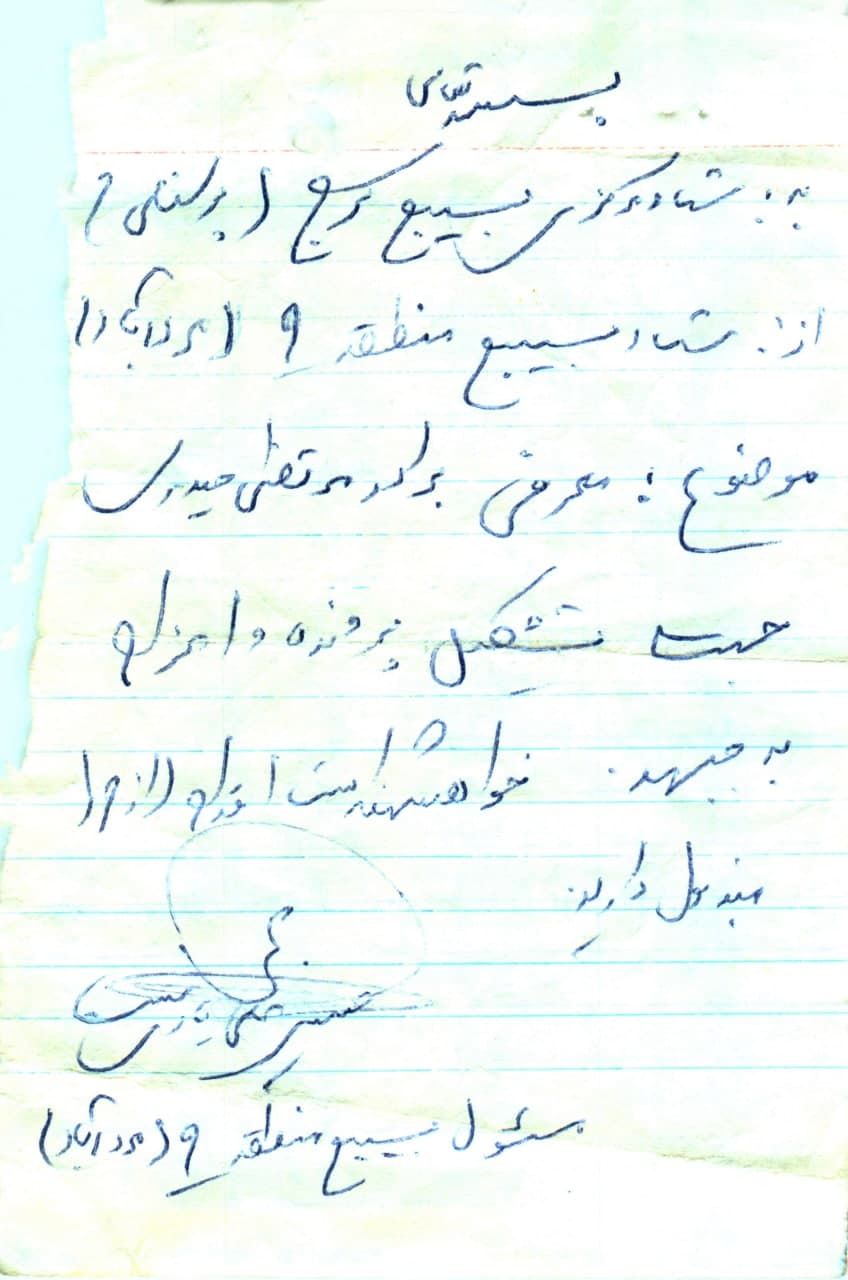 بسمه تعالی
به: ستاد مرکزی بسیج کرج (پرسنلی)
از: ستاد بسیج منطقه ۹ (مردآباد)
موضوع: معرفی برادر مرتضی حیدری
جهت تشکیل پرونده و اعزام
به جبهه. خواهشمند است اقدام (لازم)
مبذول دارید.
مسئول بسیج منطقه ۹ (مردآباد)